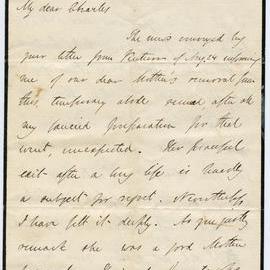 My dear Charles,
The news conveyed by
your letter from of Aug. 24 informing
me of our dear Mother's removal from
this temporary abode seemed after all
my fancied preparation for that
event, unexpected. Her peaceful
exit after a long life is hardly
a subject for regret. Nevertheless
I have felt it deeply. As you justly
remark she was a good Mother